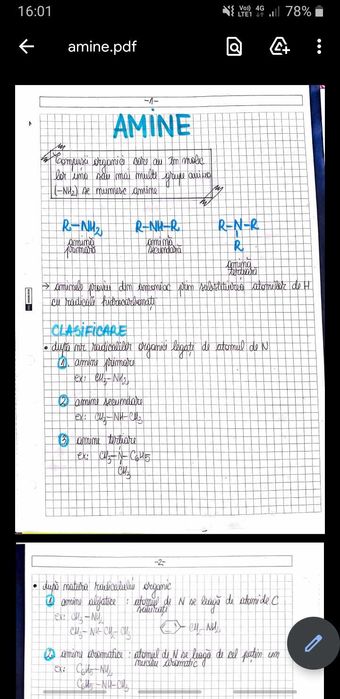 16:01
Vo)) 4G LTE1 78%
amine.pdf
-1-
AMINE
Compușii organici care au în molec
lor una sau mai multe grupe amino
(-NH₂) se numesc amine
R-NH₂ R-NH-R R-N-R
R
amină primară amină secundară amină terțiară
→ aminele provin din amoniac prin substituirea atomilor de H
cu radicali hidrocarbonați
CLASIFICARE
• după nr. radicalilor organici legați de atomul de N
1. amine primare
ex: CH₃-NH₂
2 amine secundare
ex: CH₃-NH-CH₃
3 amine terțiare
ex: CH₃-N-C6H5
CH₃
-2-
• după natura radicalului organic
1 amine alifatice : atomul de N se leagă de atomi de C
saturați
ex: CH₃-NH₂
CH₃-NH-CH₂-CH₃ CH₂-NH₂
2. amine aromatice : atomul de N se leagă de cel puțin un
nucleu aromatic
ex: C6H5-NH₂
C6H5-NH-CH₃